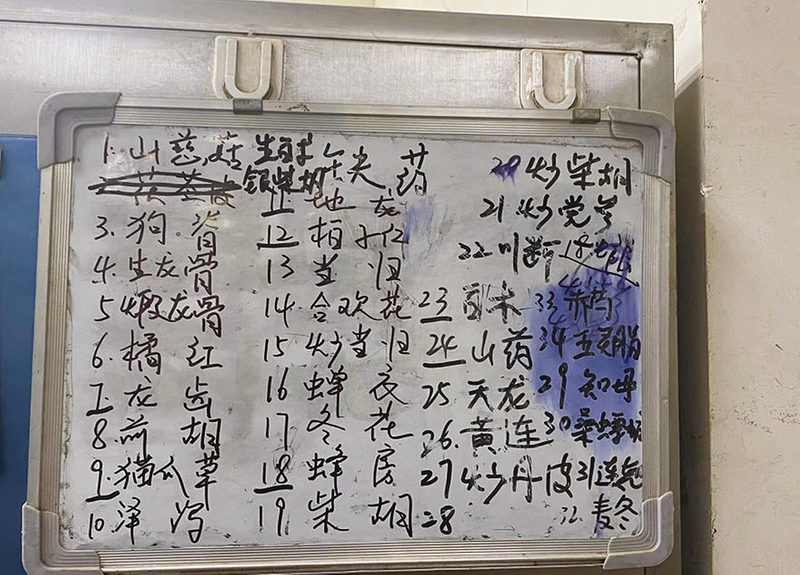 1. 山慈菇
3. 狗脊
4. 生龙骨
5 煅龙骨
6. 橘红
7. 龙齿
8 前胡
9. 猫爪草
10 泽泻
生
银柴胡
缺药
11 地龙
12 柏子仁
13 当归
14 合欢花
15 炒当归
16 蝉衣
17 冬花
18 蜂房
19 柴胡
20 炒柴胡
21 炒党参
22 川断
23
24 山药
25 天龙
26. 黄连
27 炒丹皮
28
33 赤芍
34 五灵脂
29 知母
30 桑螵蛸
31 连翘
32 麦冬